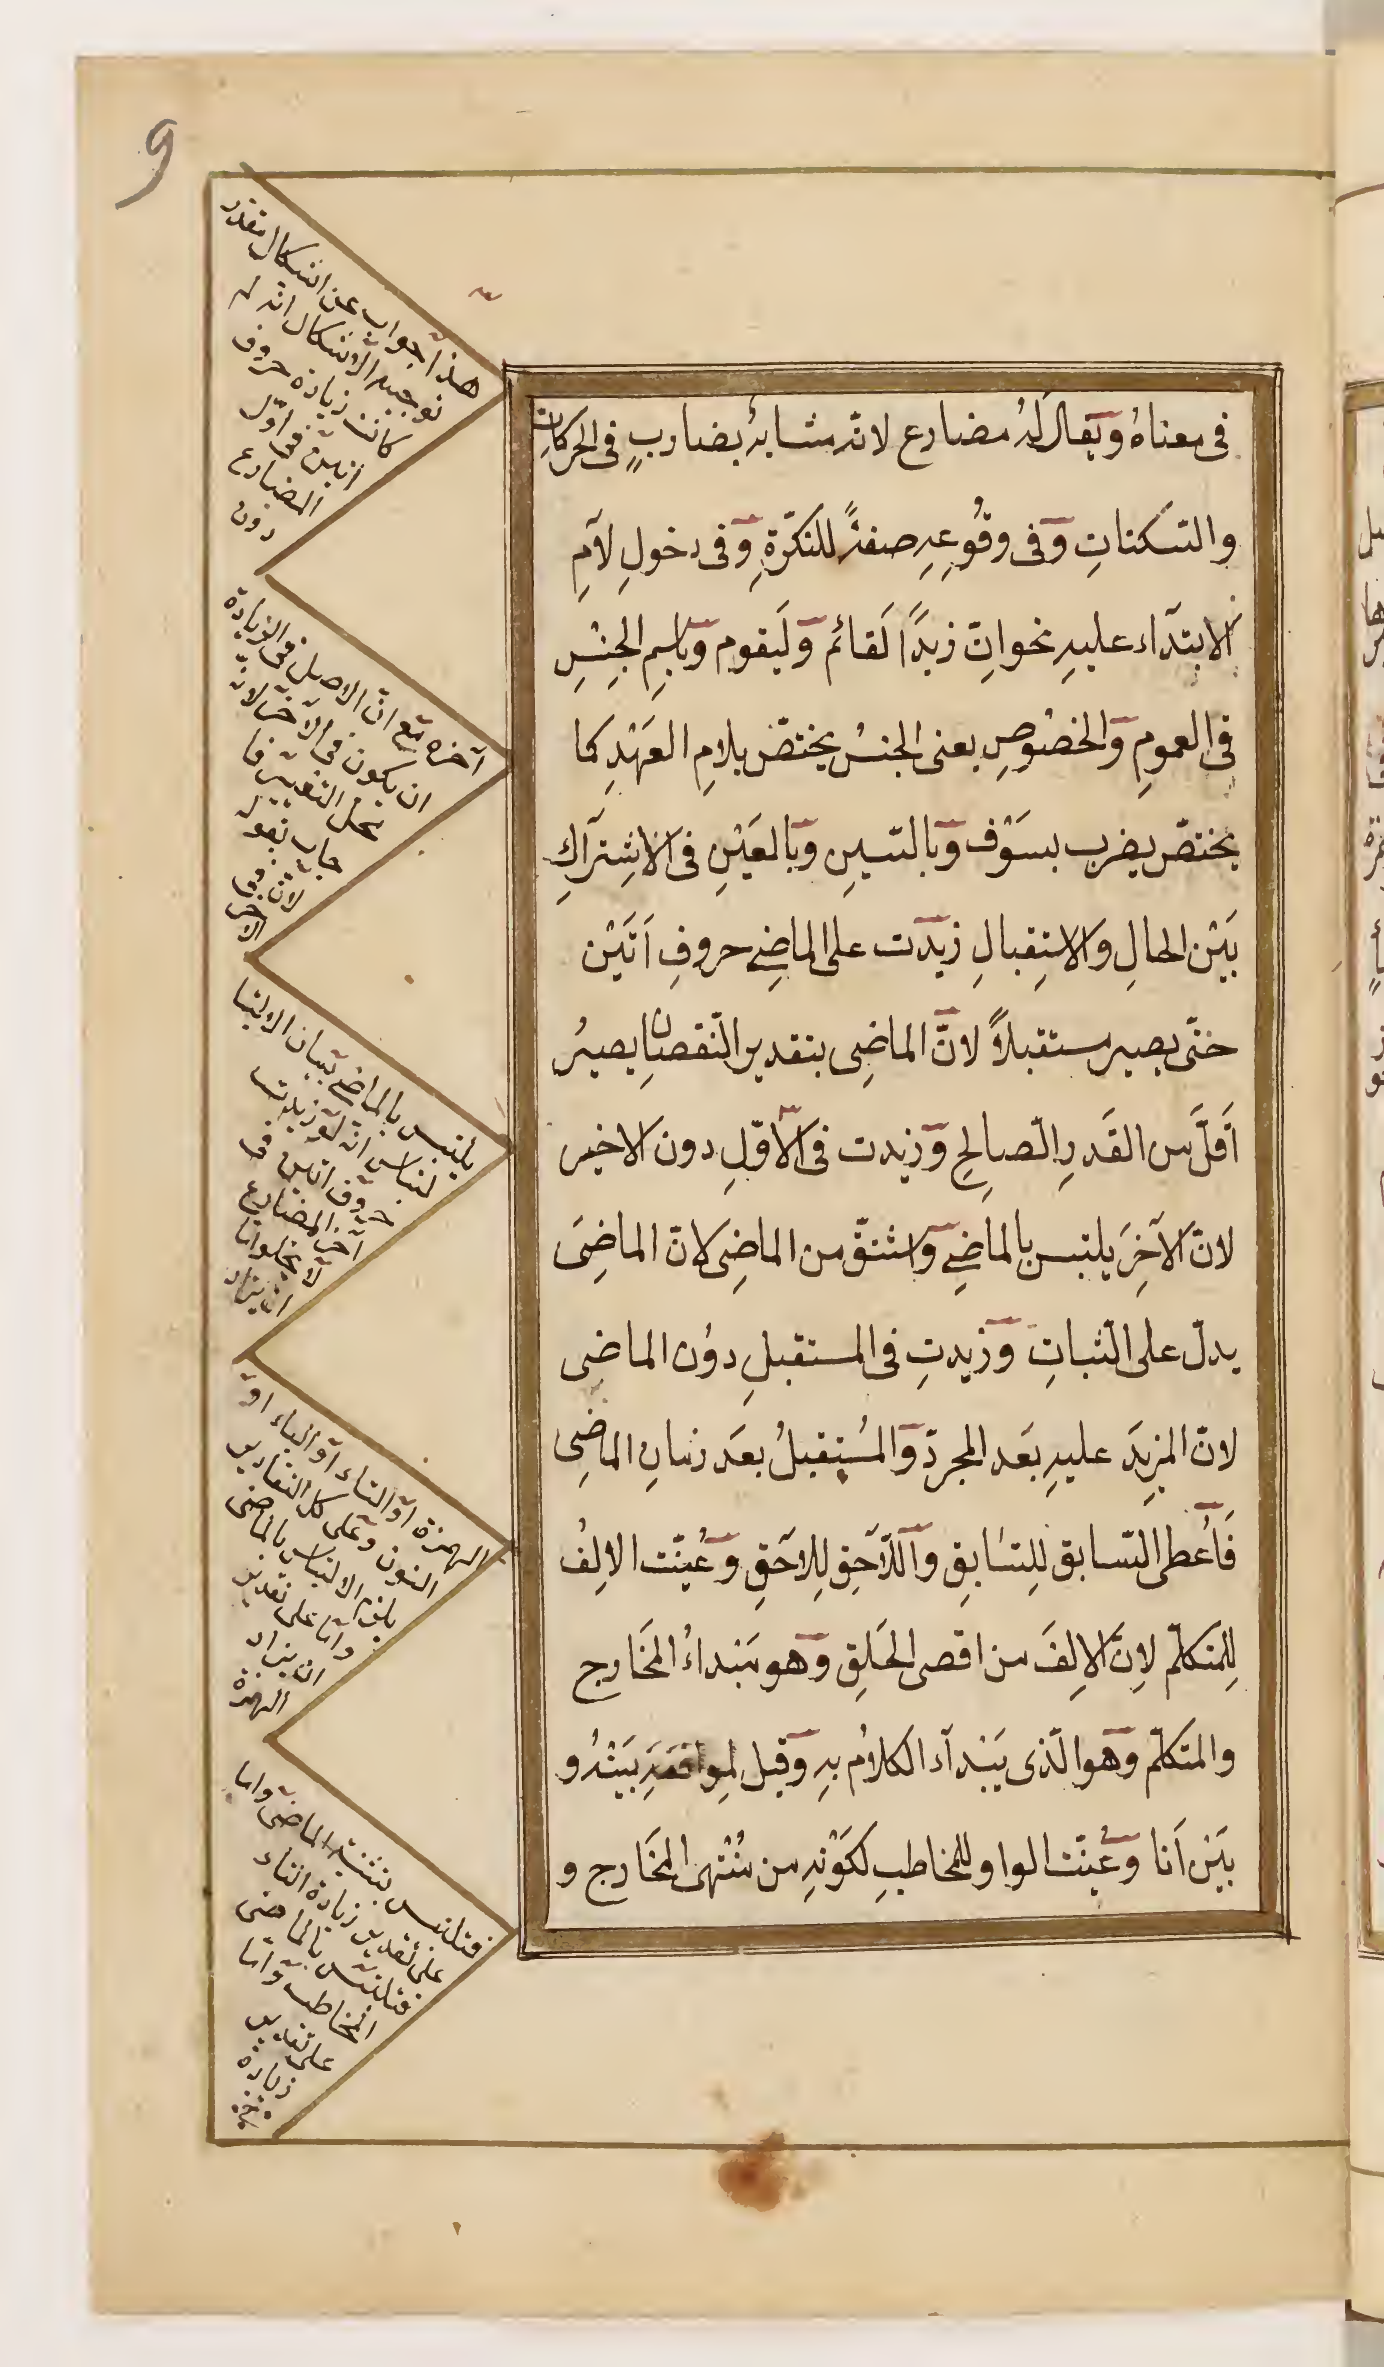 9
فى معناهُ وَيقالَ لهُ مضارع لانّه مشابهُ بضاربٍ فى الحركاتِ
والسّكناتِ وَفى وقُوعِهِ صفةً للنكرَةِ وَفى دخولِ لآمِ
الابتدَآء عليهِ نحو انّ زيدًا لَقائم وَلَيقوم وَباسمِ الجِنْسِ
فى العمومِ وَالخصُوصِ يعنى الجنسُ يختصّ بلامِ العَهْدِ كما
يختصّ يضرب بسَوْف وَبالسّينِ وَبالعَيْنِ فى الاشِترَآكِ
بَيْن الحالِ والاستِقبالِ زيدَت على الماضِے حروفِ اَتَيْن
حتّى يصير مستقبلاً لانّ الماضِى بتقدير النّقصانِ يصيرُ
اَقلَّ من القَدرِ الصّالحِ وَزيدت فى الاَوّلِ دون الاخير
لانّ الآخِرَ يلتبس بالماضِے وَاشتقّ من الماضِى لانّ الماضِىَ
يدلّ على الثّباتِ وَزيدتِ فى المستقبلِ دوُن الماضى
لانّ المزِيدَ عليهِ بعَد المجردّ وَالمسُتقبلُ بعَد زمانِ الماضِى
فَاُعطى السّابق للِسّابقِ وَاللّآحَقِ لِلاحَقِ وَعُيّنَت الالِفُ
لِلمتكلّم لاِنّ الالِفَ من اقصى الحَلقِ وَهو مَبْداءُ المخَارج
والمتكلّم وَهو الّذى يَبْدآء الكلامُ بهِ وَقيل لِموافقَةِ بَيْنَهُ و
بيَن اَنا وَعُيّنَت الواو للمخاطبِ لكَوْنهِ من مُنْتهى المخَارج و
هذا جواب عن اشكال مقدر
توجيه الاشكال انّه لم
كانت زيادة حروف
اتين فى اوّل
المضارع
دون
آخره مع انّ الاصل فى الزيادة
ان يكون فى الآخر لانّه
محل التغيير فا
جاب بقوله
لانّ فى
الآخر
يلتبس بالماضى بيان الالتبا
لتباس انّه لو زيدت
حروف اتين فى
آخر المضارع
لا يخلو امّا
ان يزاد
الهمزة او التاء او الياء او
النون وعلى كل التقادير
يلزم الالتباس بالماضى
وامّا على تقدير
ان يزاد
الهمزة
فتلتبس بتثنية الماضى وامّا
على تقدير زيادة التاء
فتلتبس بالماضى
المخاطب وامّا
على تقدير
زيادة